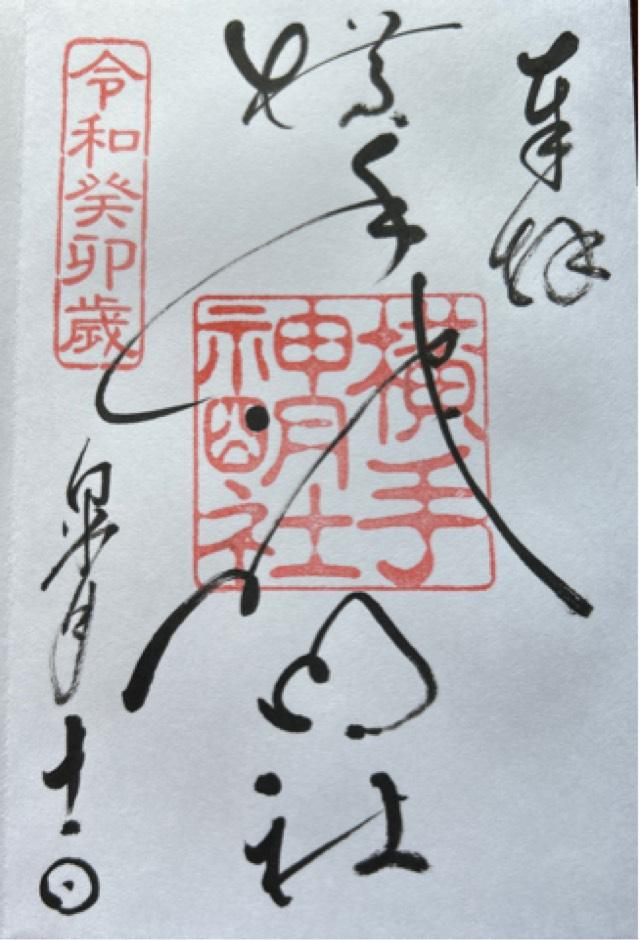 奉拝
横手
神明社
横手
神明社
令和癸卯歳
皐月十一日